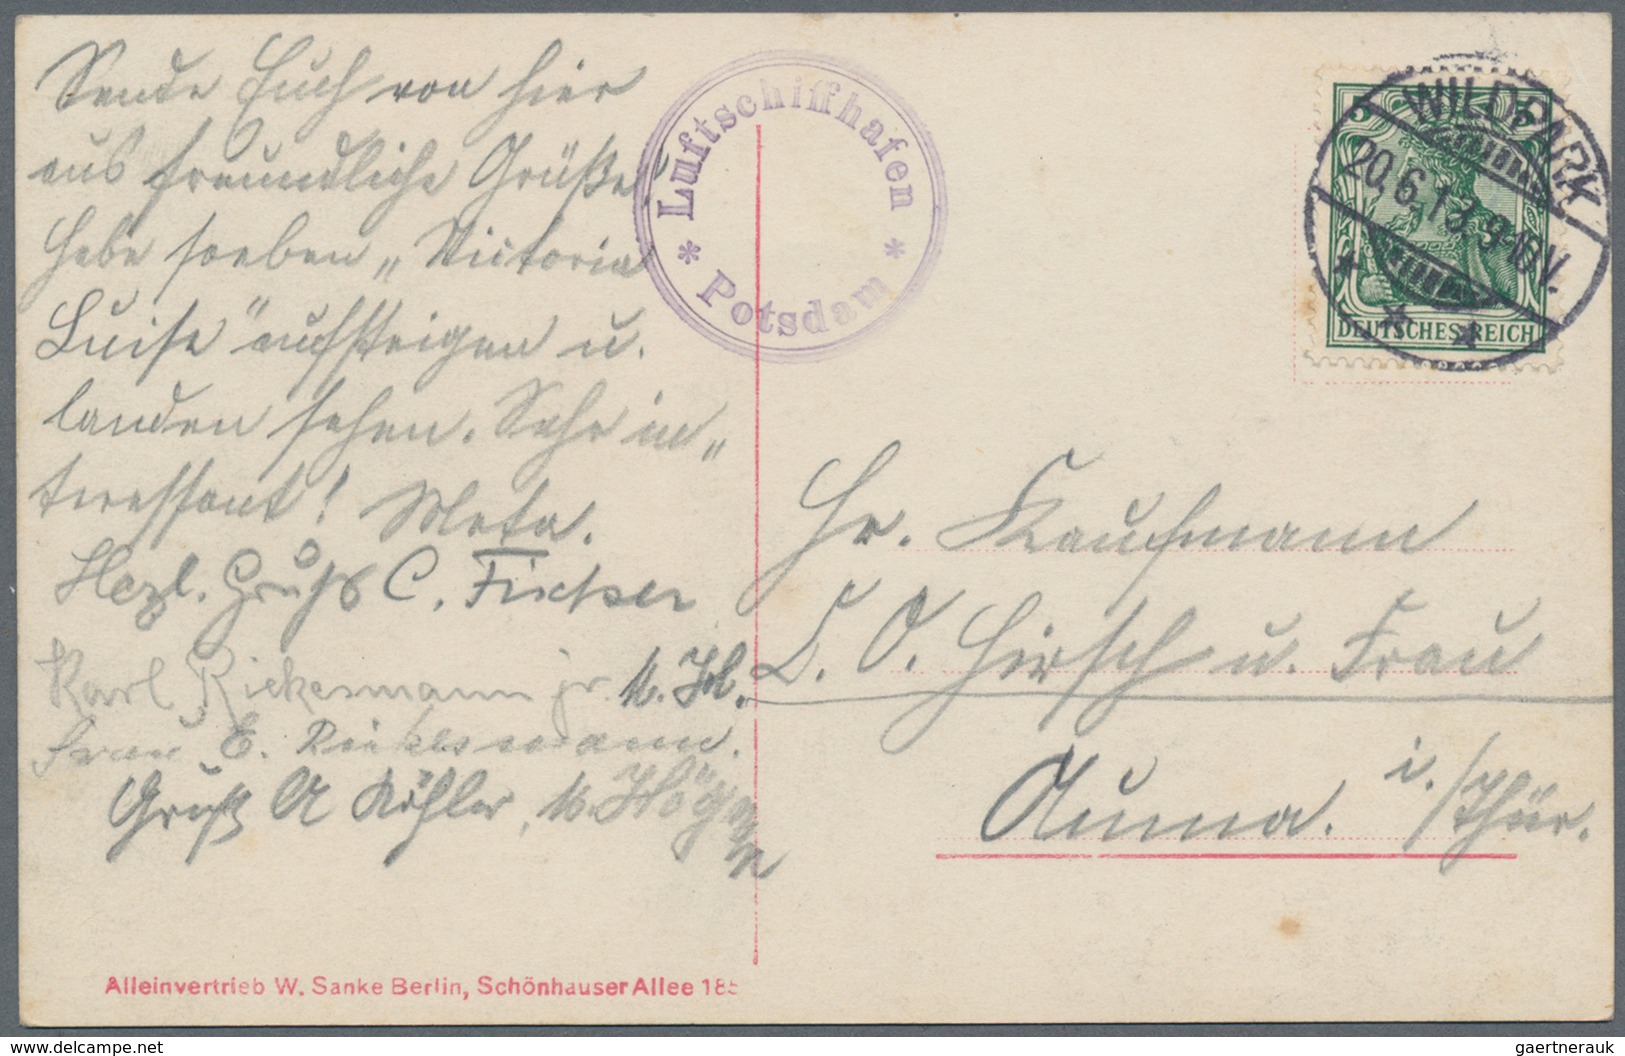 Sende Euch von hier
aus freundliche Grüße
Habe soeben „Victoria
Luise" aufsteigen u.
landen sehen. Sehr in„
teressant! Meta.
Herzl. Gruß C. Fischer
Karl Riekesmann jr.
Frau E. Riekesmann.
Gruß A Köhler,
* Luftschiffhafen *
Potsdam
WILDPARK
20.6.13. 9-10 V.
5
DEUTSCHES REICH
Hr. Kaufmann
L. O. Hirsch u. Frau
Auma. i/Thür.
Alleinvertrieb W. Sanke Berlin, Schönhauser Allee 185
delcampe.net
gaertnerauk